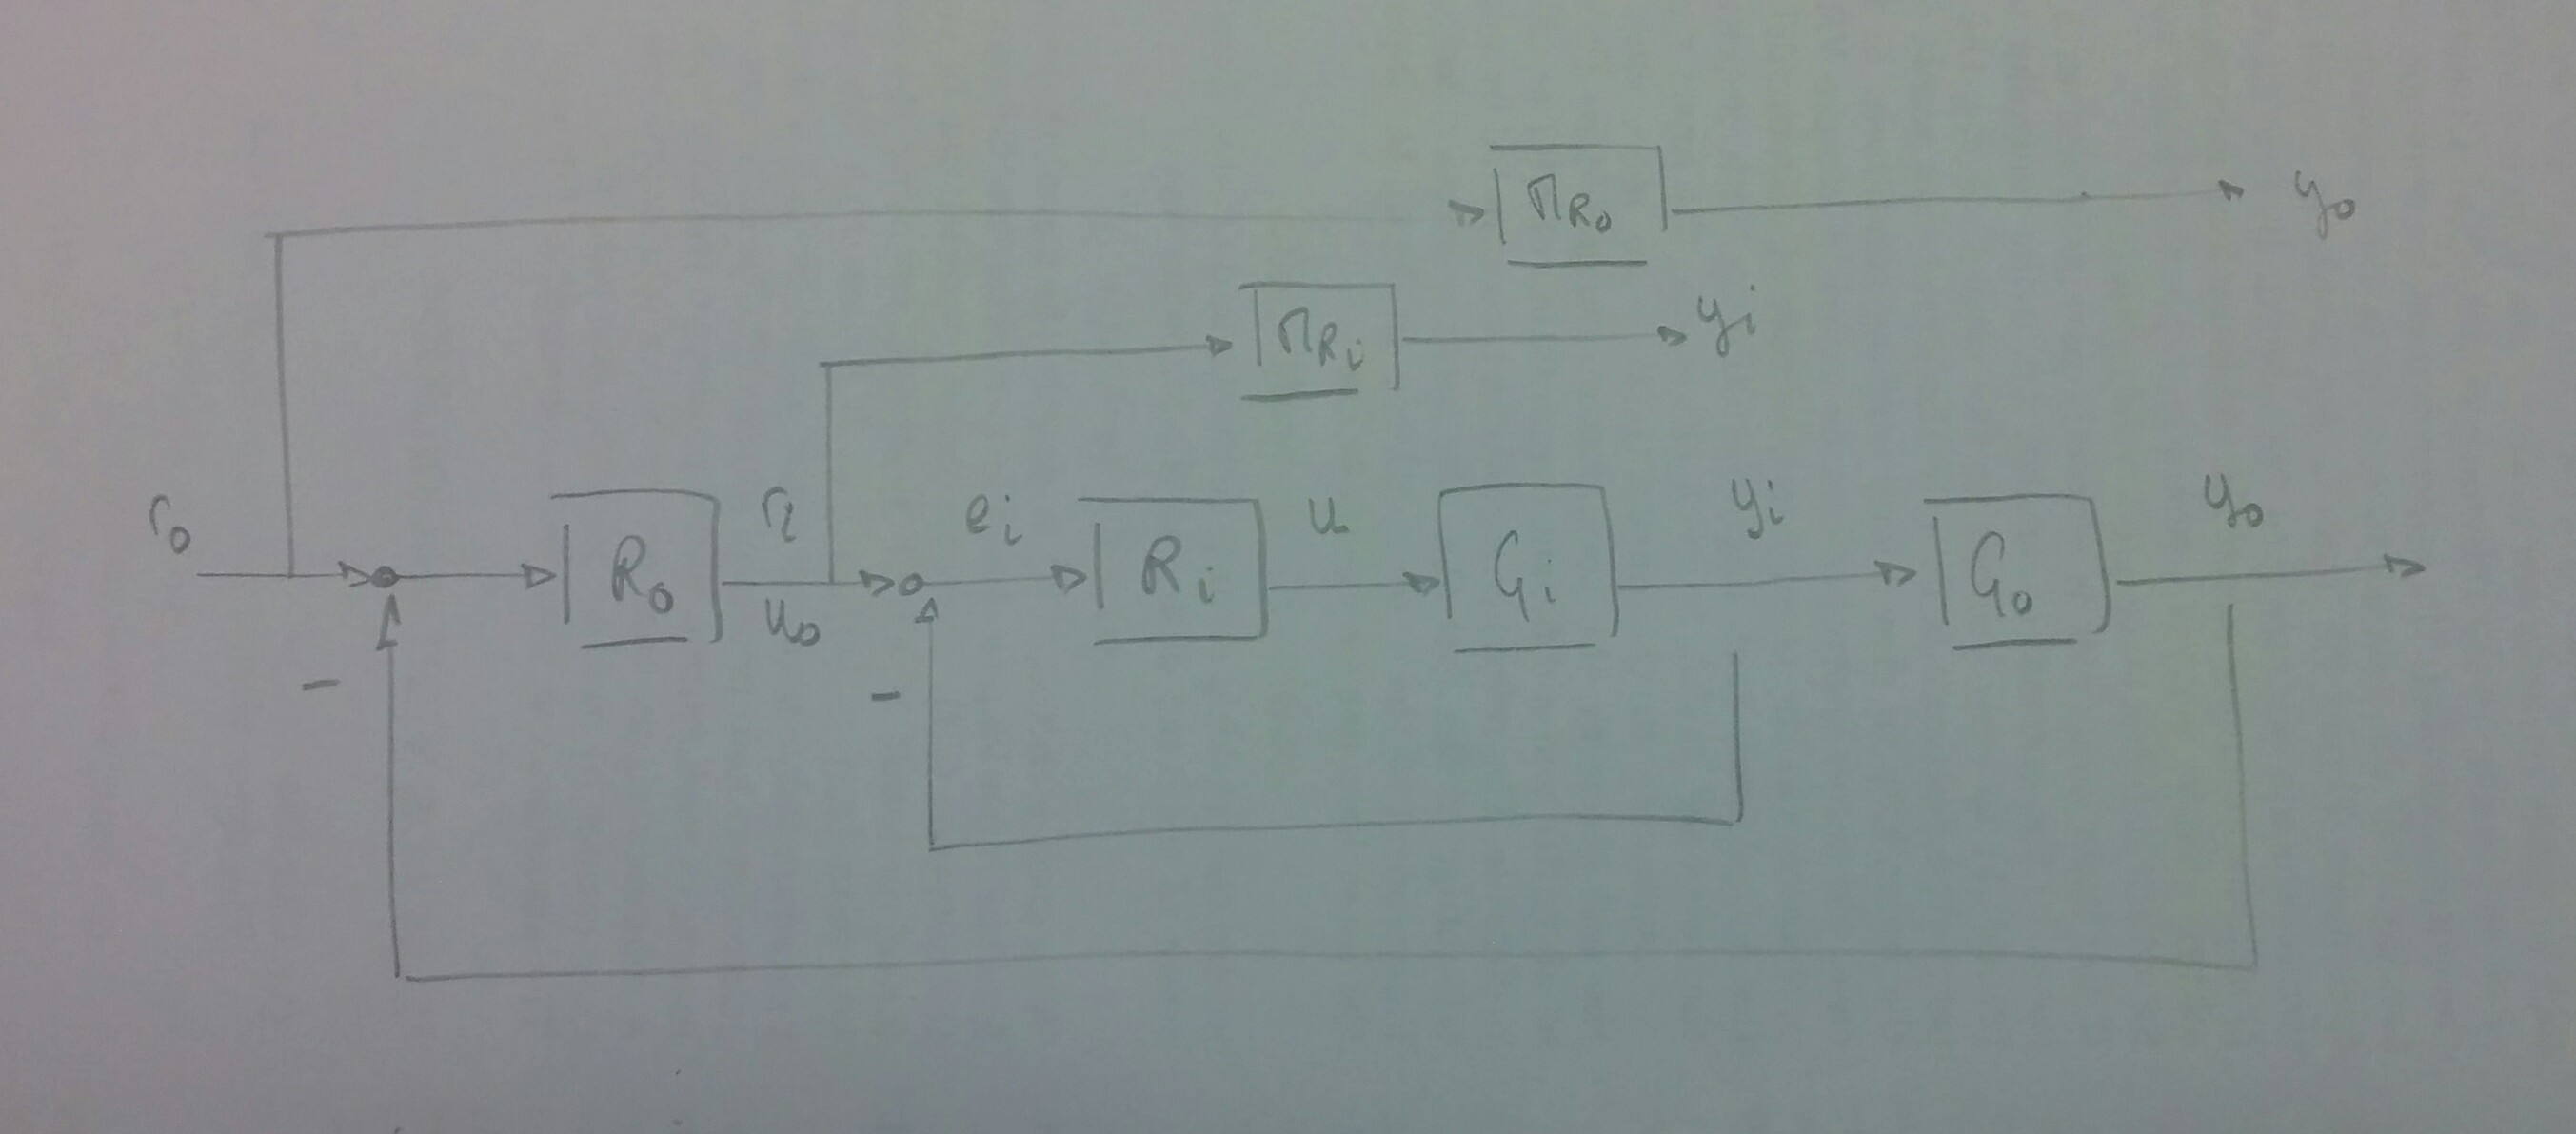 M_Ro yo
M_Ri yi
ro Ro ri ei Ri u Gi yi Go yo
uo
- -